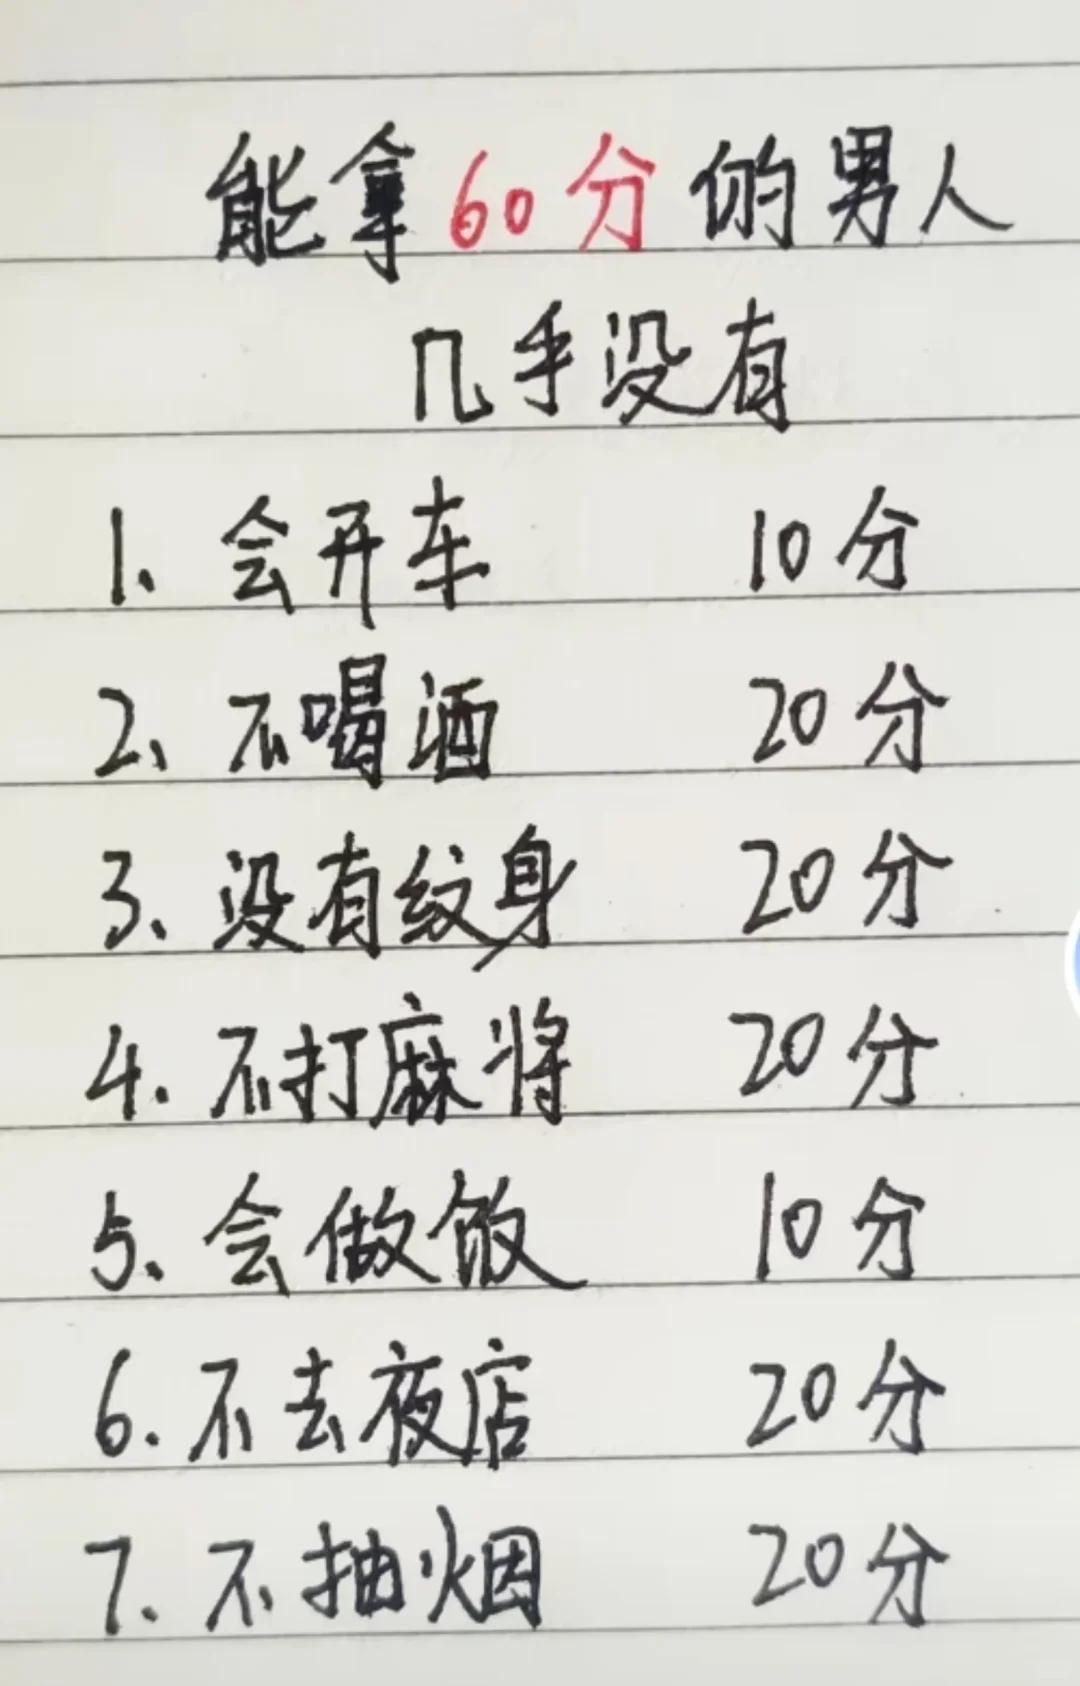 能拿60分的男人
几乎没有
1、会开车 10分
2、不喝酒 20分
3、没有纹身 20分
4.不打麻将 20分
5、会做饭 10分
6.不去夜店 20分
7.不抽烟 20分